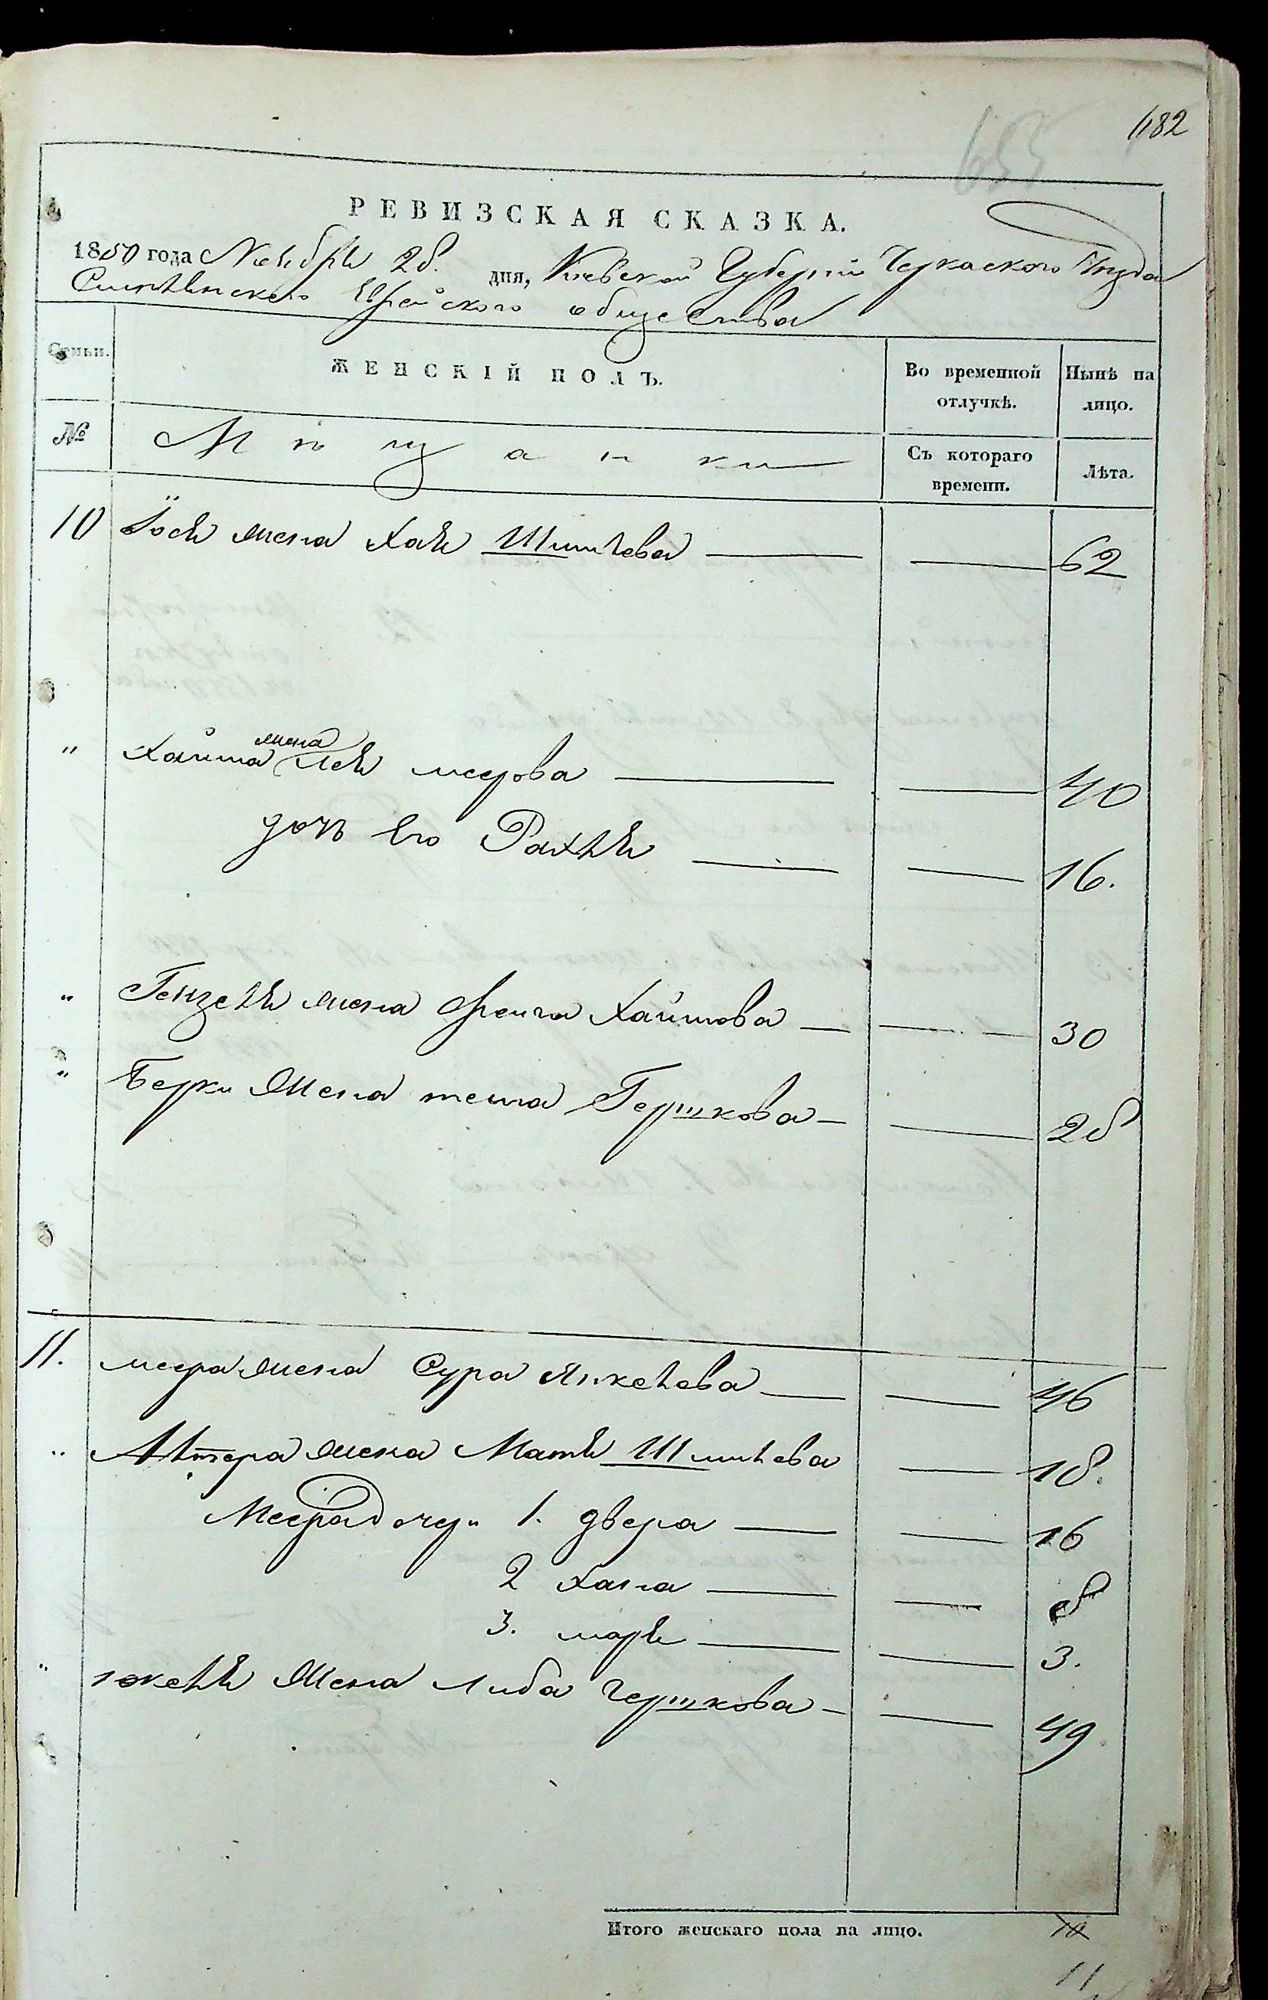 682
653
РЕВИЗСКАЯ СКАЗКА.
1850 года Ноября 28. дня, Киевской Губерніи Черкаского Уезда
Смелянского Еврейского общества
Семьи. ЖЕНСКІЙ ПОЛЪ. Во временной отлучкѣ. Нынѣ на лицо.
№ Мѣщанки Съ котораго времени. Лѣта.
10 Іося жена Хая Шмулева 62
" Хаима жена Лея меерова 40
дочь его Рахля 16.
" жена Хаимова 30
" Берки жена Гершкова 28
11. меера жена Сура Янкелева 46
" жена Матя Шмулева 18.
Меера дочери 1. двера 16
2 хана 8
3. маря 3.
" жена Либа гершкова 49
Итого женскаго пола на лицо. 10
11